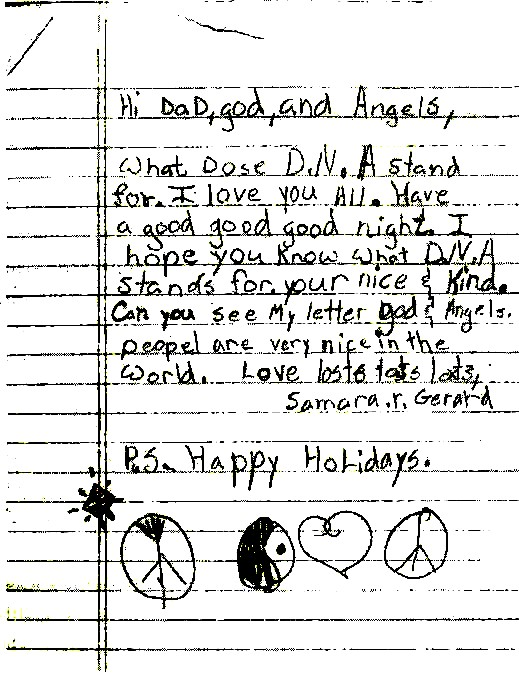 Hi DaD, god, and Angels,
What Dose D.N.A stand
for. I love you All. Have
a good good good night. I
hope you Know what D.N.A
stands for. your nice & Kind.
Can you see My letter god & Angels.
peopel are very nice in the
World. Love losts lots lots,
Samara.r. Gerard
P.S. Happy Holidays.